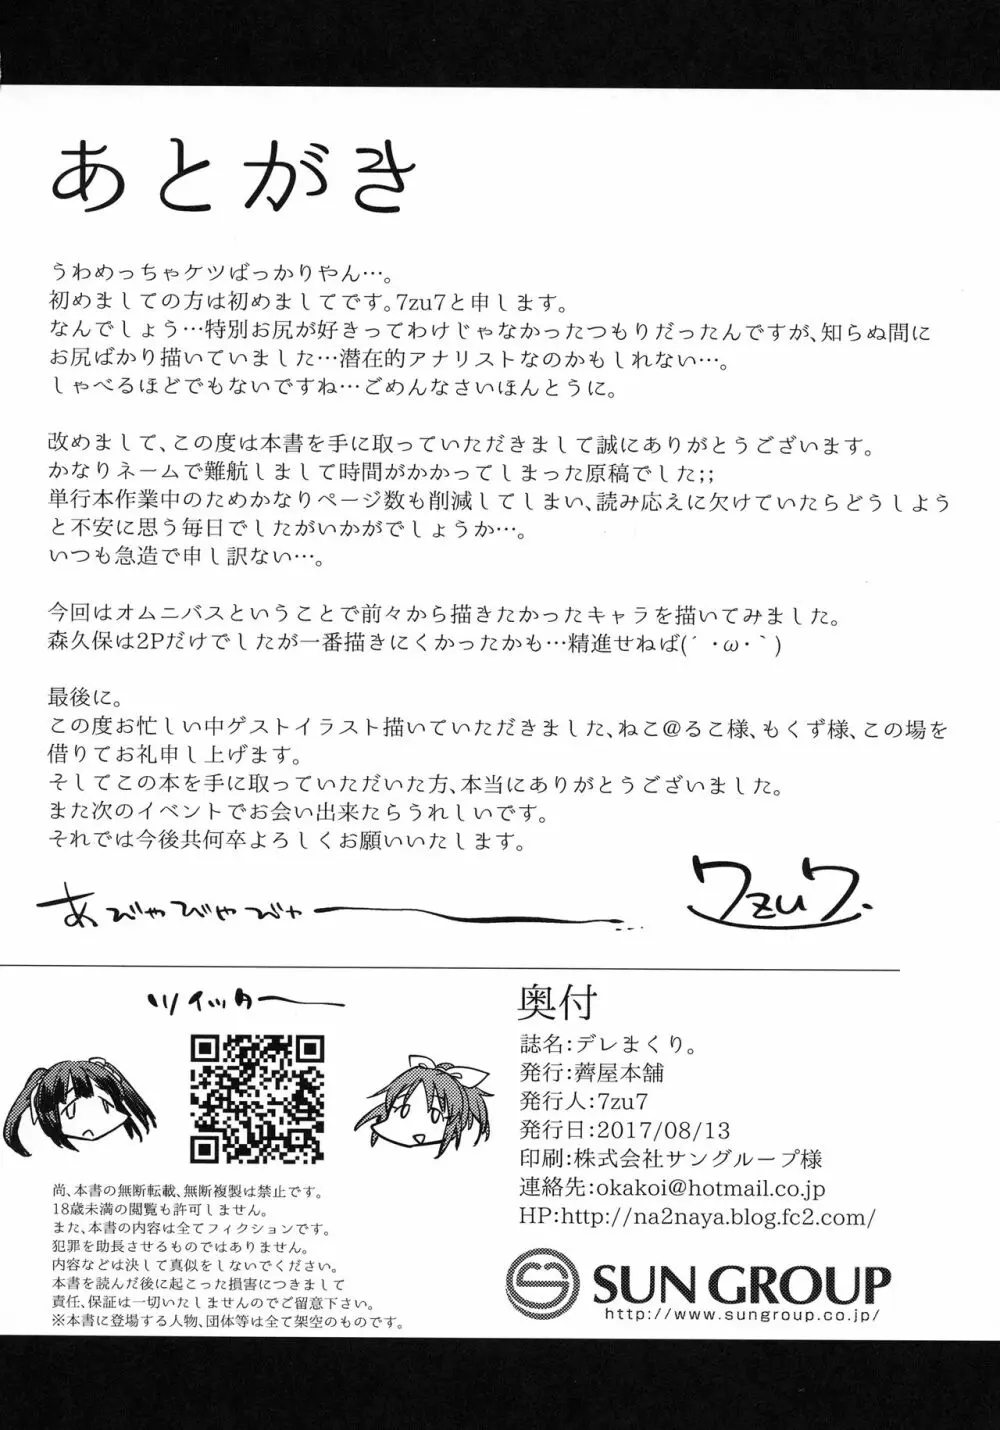 あとがき
うわめっちゃケツばっかりやん…。
初めましての方は初めましてです。7zu7と申します。
なんでしょう…特別お尻が好きってわけじゃなかったつもりだったんですが、知らぬ間に
お尻ばかり描いていました…潜在的アナリストなのかもしれない…。
しゃべるほどでもないですね…ごめんなさいほんとうに。
改めまして、この度は本書を手に取っていただきまして誠にありがとうございます。
かなりネームで難航しまして時間がかかってしまった原稿でした;;
単行本作業中のためかなりページ数も削減してしまい、読み応えに欠けていたらどうしよう
と不安に思う毎日でしたがいかがでしょうか…。
いつも急造で申し訳ない…。
今回はオムニバスということで前々から描きたかったキャラを描いてみました。
森久保は2Pだけでしたが一番描きにくかったかも…精進せねば(´・ω・｀)
最後に。
この度お忙しい中ゲストイラスト描いていただきました、ねこ@るこ様、もくず様、この場を
借りてお礼申し上げます。
そしてこの本を手に取っていただいた方、本当にありがとうございました。
また次のイベントでお会い出来たらうれしいです。
それでは今後共何卒よろしくお願いいたします。
あびゃびゃびゃー
7zu7.
ツイッター
尚、本書の無断転載、無断複製は禁止です。
18歳未満の閲覧も許可しません。
また、本書の内容は全てフィクションです。
犯罪を助長させるものではありません。
内容などは決して真似をしないでください。
本書を読んだ後に起こった損害につきまして
責任、保証は一切いたしませんのでご留意下さい。
※本書に登場する人物、団体等は全て架空のものです。
奥付
誌名:デレまくり。
発行:薺屋本舗
発行人:7zu7
発行日:2017/08/13
印刷:株式会社サングループ様
連絡先:okakoi@hotmail.co.jp
HP:http://na2naya.blog.fc2.com/
SUN GROUP
http://www.sungroup.co.jp/